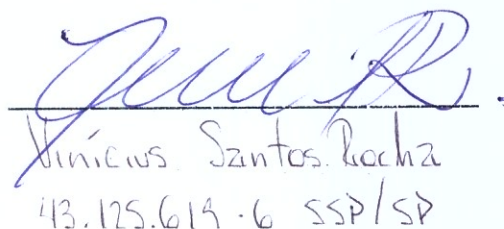 Vinícius Santos Rocha
43.125.619-6 SSP/SP